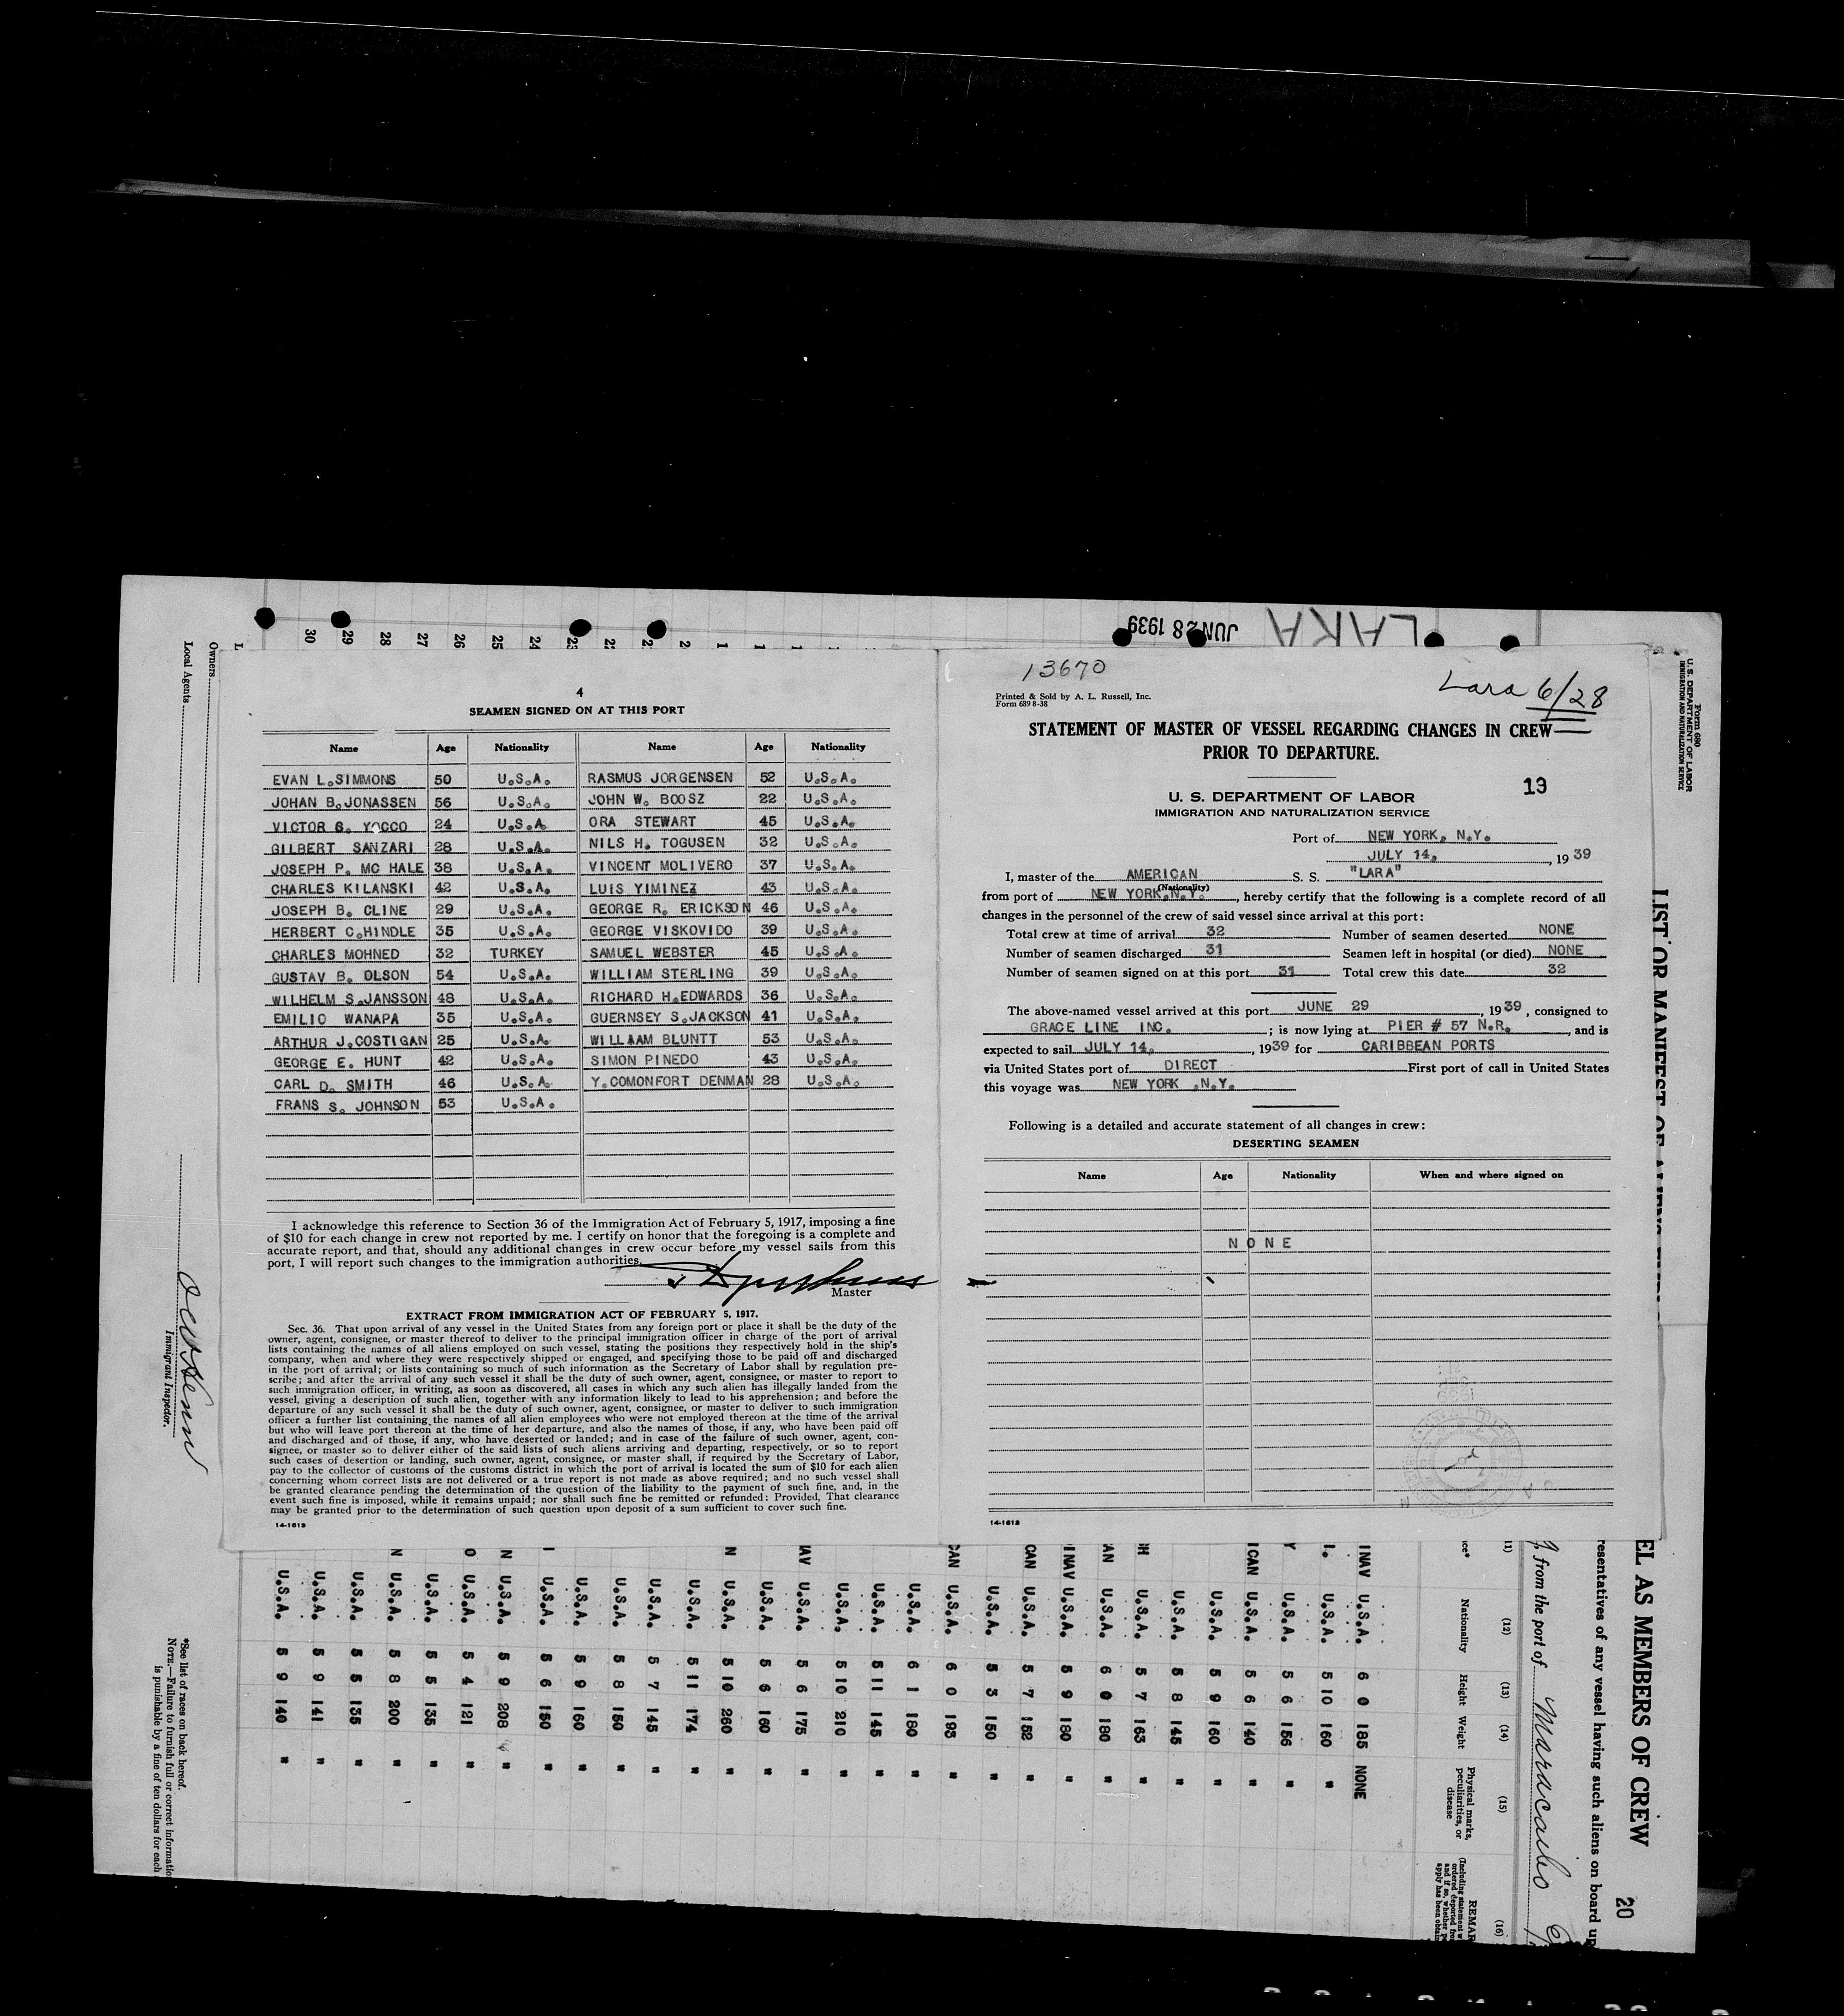 JUN 28 1939
LARA
30 29 28 27 26 25 24
4
SEAMEN SIGNED ON AT THIS PORT
Name Age Nationality Name Age Nationality
EVAN L.SIMMONS 50 U.S.A. RASMUS JORGENSEN 52 U.S.A.
JOHAN B.JONASSEN 56 U.S.A. JOHN W. BOOSZ 22 U.S.A.
VICTOR S. YOCCO 24 U.S.A. ORA STEWART 45 U.S.A.
GILBERT SANZARI 28 U.S.A. NILS H. TOGUSEN 32 U.S.A.
JOSEPH P. MC HALE 38 U.S.A. VINCENT MOLIVERO 37 U.S.A.
CHARLES KILANSKI 42 U.S.A. LUIS YIMINEZ 43 U.S.A.
JOSEPH B. CLINE 29 U.S.A. GEORGE R. ERICKSON 46 U.S.A.
HERBERT C.HINDLE 35 U.S.A. GEORGE VISKOVIDO 39 U.S.A.
CHARLES MOHNED 32 TURKEY SAMUEL WEBSTER 45 U.S.A.
GUSTAV B. OLSON 54 U.S.A. WILLIAM STERLING 39 U.S.A.
WILHELM S.JANSSON 48 U.S.A. RICHARD H.EDWARDS 36 U.S.A.
EMILIO WANAPA 35 U.S.A. GUERNSEY S.JACKSON 41 U.S.A.
ARTHUR J.COSTIGAN 25 U.S.A. WILLAAM BLUNTT 53 U.S.A.
GEORGE E. HUNT 42 U.S.A. SIMON PINEDO 43 U.S.A.
CARL D. SMITH 46 U.S.A. Y.COMONFORT DENMAN 28 U.S.A.
FRANS S. JOHNSON 53 U.S.A.
I acknowledge this reference to Section 36 of the Immigration Act of February 5, 1917, imposing a fine
of $10 for each change in crew not reported by me. I certify on honor that the foregoing is a complete and
accurate report, and that, should any additional changes in crew occur before my vessel sails from this
port, I will report such changes to the immigration authorities.
Master
EXTRACT FROM IMMIGRATION ACT OF FEBRUARY 5, 1917.
Sec. 36. That upon arrival of any vessel in the United States from any foreign port or place it shall be the duty of the
owner, agent, consignee, or master thereof to deliver to the principal immigration officer in charge of the port of arrival
lists containing the names of all aliens employed on such vessel, stating the positions they respectively hold in the ship's
company, when and where they were respectively shipped or engaged, and specifying those to be paid off and discharged
in the port of arrival; or lists containing so much of such information as the Secretary of Labor shall by regulation pre-
scribe; and after the arrival of any such vessel it shall be the duty of such owner, agent, consignee, or master to report to
such immigration officer, in writing, as soon as discovered, all cases in which any such alien has illegally landed from the
vessel, giving a description of such alien, together with any information likely to lead to his apprehension; and before the
departure of any such vessel it shall be the duty of such owner, agent, consignee, or master to deliver to such immigration
officer a further list containing the names of all alien employees who were not employed thereon at the time of the arrival
but who will leave port thereon at the time of her departure, and also the names of those, if any, who have been paid off
and discharged and of those, if any, who have deserted or landed; and in case of the failure of such owner, agent, con-
signee, or master so to deliver either of the said lists of such aliens arriving and departing, respectively, or so to report
such cases of desertion or landing, such owner, agent, consignee, or master shall, if required by the Secretary of Labor,
pay to the collector of customs of the customs district in which the port of arrival is located the sum of $10 for each alien
concerning whom correct lists are not delivered or a true report is not made as above required; and no such vessel shall
be granted clearance pending the determination of the question of the liability to the payment of such fine, and, in the
event such fine is imposed, while it remains unpaid; nor shall such fine be remitted or refunded: Provided, That clearance
may be granted prior to the determination of such question upon deposit of a sum sufficient to cover such fine.
14-1613
13670
Lara 6/28
Printed & Sold by A. L. Russell, Inc.
Form 689 8-38
STATEMENT OF MASTER OF VESSEL REGARDING CHANGES IN CREW
PRIOR TO DEPARTURE.
13
U. S. DEPARTMENT OF LABOR
IMMIGRATION AND NATURALIZATION SERVICE
Port of NEW YORK, N.Y.
JULY 14, , 19 39
I, master of the AMERICAN S. S. "LARA"
(Nationality)
from port of NEW YORK,N.Y. , hereby certify that the following is a complete record of all
changes in the personnel of the crew of said vessel since arrival at this port:
Total crew at time of arrival 32 Number of seamen deserted NONE
Number of seamen discharged 31 Seamen left in hospital (or died) NONE
Number of seamen signed on at this port 31 Total crew this date 32
The above-named vessel arrived at this port JUNE 29 , 1939 , consigned to
GRACE LINE INC. ; is now lying at PIER # 57 N.R. , and is
expected to sail JULY 14, , 1939 for CARIBBEAN PORTS
via United States port of DIRECT First port of call in United States
this voyage was NEW YORK ,N.Y.
Following is a detailed and accurate statement of all changes in crew:
DESERTING SEAMEN
Name Age Nationality When and where signed on
NONE
14-1613
Form 680
U. S. DEPARTMENT OF LABOR
IMMIGRATION AND NATURALIZATION SERVICE
LIST OR MANIFEST OF
EL AS MEMBERS OF CREW
20
resentatives of any vessel having such aliens on board up
from the port of Maracaibo
(12) (13) (14) (15) (16)
Nationality Height Weight Physical marks, peculiarities, or disease
INAV U.S.A. 6 0 185 NONE
U.S.A. 5 10 160 "
Y U.S.A. 5 6 156 "
ICAN U.S.A. 5 6 140 "
U.S.A. 5 9 160 "
U.S.A. 5 8 145 "
H U.S.A. 5 7 163 "
AN U.S.A. 6 0 180 "
INAV U.S.A. 5 9 180 "
CAN U.S.A. 5 7 152 "
U.S.A. 5 3 150 "
CAN U.S.A. 6 0 193 "
U.S.A. 6 1 180 "
U.S.A. 5 11 145 "
U.S.A. 5 10 210 "
AV U.S.A. 5 6 175 "
U.S.A. 5 6 160 "
N U.S.A. 5 10 260 "
U.S.A. 5 11 174 "
U.S.A. 5 7 145 "
U.S.A. 5 8 150 "
U.S.A. 5 9 160 "
U.S.A. 5 6 150 "
N U.S.A. 5 9 208 "
O U.S.A. 5 4 121 "
U.S.A. 5 5 135 "
N U.S.A. 5 8 200 "
U.S.A. 5 5 135 "
U.S.A. 5 9 141 "
U.S.A. 5 9 140 "
Owners
Local Agents
Immigrant Inspector.
*See list of races on back hereof.
NOTE.—Failure to furnish full or correct informatio
is punishable by a fine of ten dollars for each